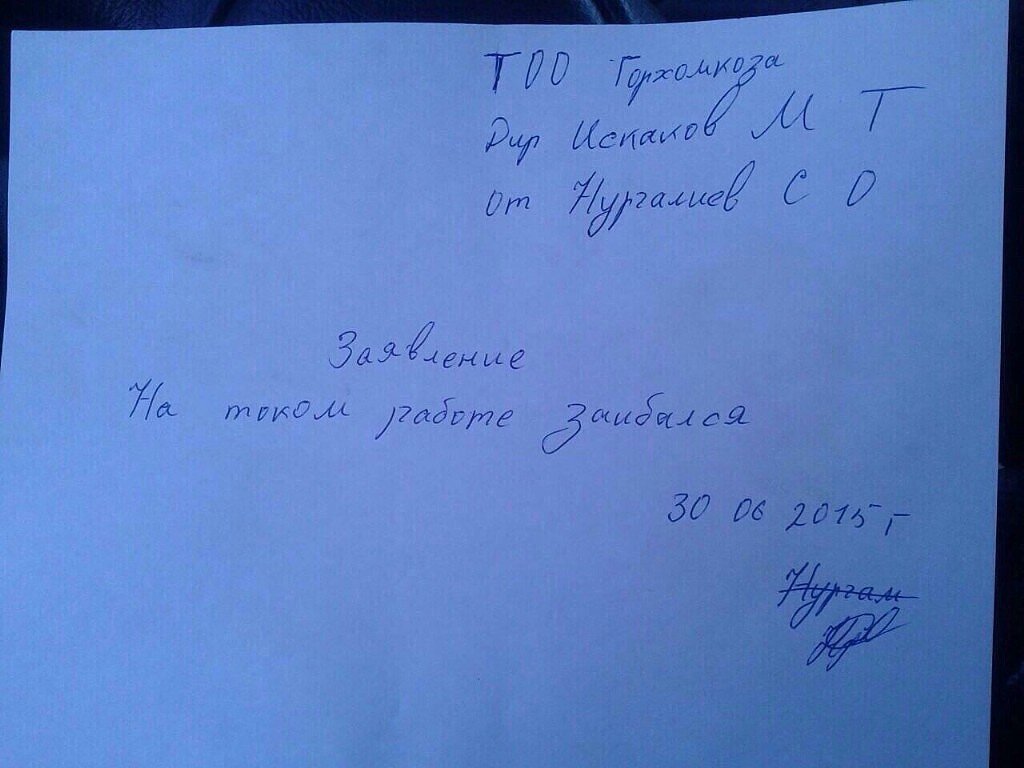 ТОО Горхомкоза
Дир Искаков М Т
от Нургалиев С О
Заявление
На током работе заибался
30 06 2015 г
Нургам